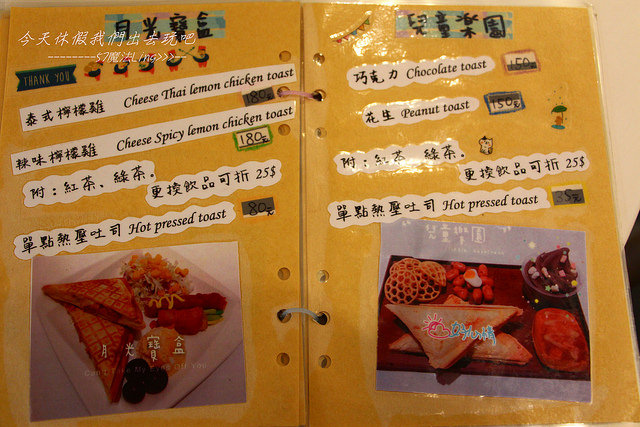 今天休假我們出去玩吧
--------57魔法Ling>>>--
月光寶盒
THANK YOU
泰式檸檬雞 Cheese Thai lemon chicken toast
180元
辣味檸檬雞 Cheese Spicy lemon chicken toast
180元
附：紅茶、綠茶。
更換飲品可折25$
單點熱壓吐司 Hot pressed toast
80元
月光寶盒
兒童樂園
巧克力 Chocolate toast
150元
花生 Peanut toast
150元
附：紅茶 綠茶。
更換飲品可折25$
單點熱壓吐司 Hot pressed toast
兒童樂園